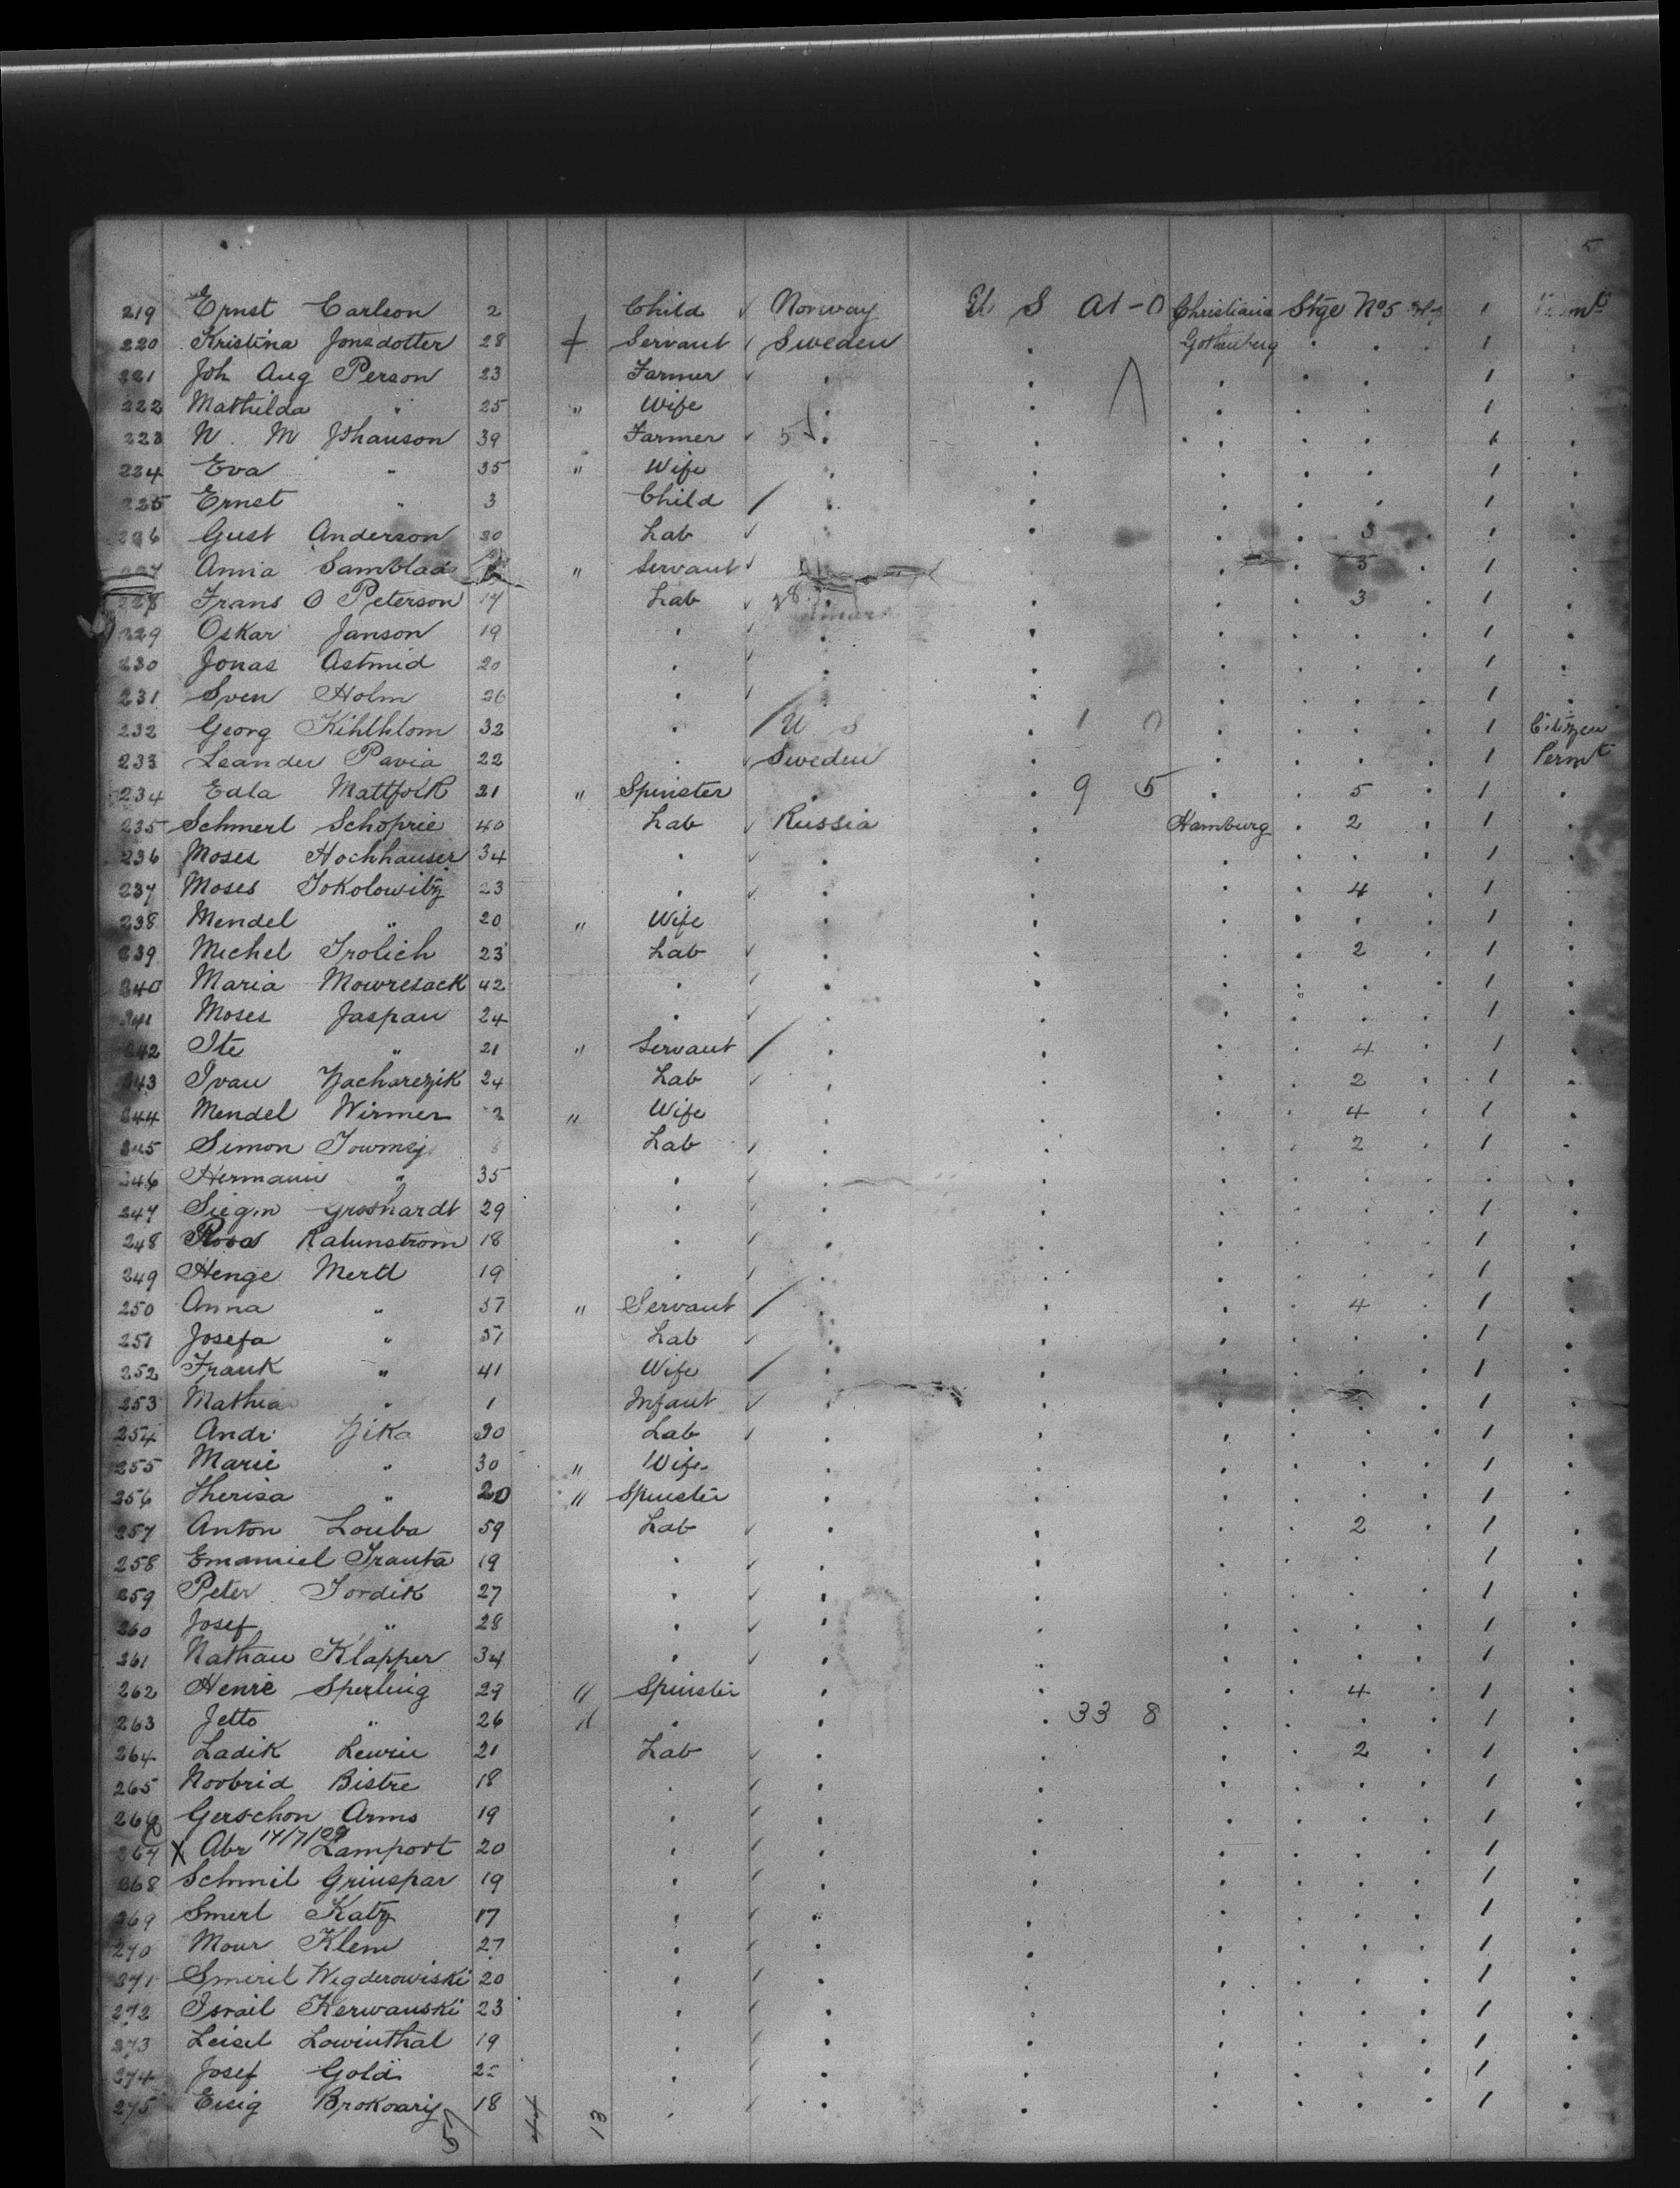 5
219 Ernst Carlson 2 Child ✓ Norway U S A1-0 Christiania Stge No5 1
220 Kristina Jonsdotter 28 + Servant ✓ Sweden . Gothenburg . . 1 .
221 Joh Aug Person 23 Farmer ✓ . . . . . 1 .
222 Mathilda " 25 " Wife . . . . . 1 .
223 N. M Johanson 39 Farmer ✓ . . . . . 1 .
224 Eva " 35 " Wife . . . . . 1 .
225 Ernst " 3 Child / . . . . . 1 .
226 Gust Anderson 30 Lab ✓ . . . . 3 . 1 .
227 Anna Samblad " Servant ✓ . . 3 . 1 .
228 Frans O Peterson 17 Lab ✓ . . . 3 . 1 .
229 Oskar Janson 19 . ✓ . . . . . . 1 .
230 Jonas Astmid 20 . ✓ . . . . . . 1 .
231 Sven Holm 26 . ✓ . . . . . 1 .
232 Georg Kihlhlom 32 . / U S 1 0 . . . . 1 Citizen
233 Leander Pavia 22 . ✓ Sweden . . . . . 1 Permt
234 Edla Mattfolk 21 " Spinster . . 9 5 . . 5 . 1 .
235 Schmerl Schoprie 40 Lab ✓ Russia . Hamburg . 2 . 1 .
236 Moses Hochhauser 34 . ✓ . . . . . . 1 .
237 Moses Sokolowitz 23 . ✓ . . . . 4 . 1 .
238 Mendel " 20 " Wife . . . . . . 1 .
239 Michel Frolich 23 Lab ✓ . . . . 2 . 1 .
240 Maria Mowresack 42 . ✓ . . . . . . 1 .
241 Moses Jaspan 24 . ✓ . . . . . . 1 .
242 Ite " 21 " Servant / . . . . 4 . 1 .
243 Ivan Zacharezik 24 Lab ✓ . . . . 2 . 1 .
244 Mendel Wirmer " Wife . . . . 4 . 1 .
245 Simon Lab ✓ . . . . 2 . 1 .
246 Hermann " 35 . ✓ . . . . . . . .
247 Siegm Grosshardt 29 . ✓ . . . . . . 1 .
248 Rosa Kalunstrom 18 . ✓ . . . . . . 1 .
249 Henge Mertl 19 . ✓ . . . . . . 1 .
250 Anna " 37 " Servant / . . . . 4 . 1 .
251 Josefa " 37 Lab ✓ . . . . . . 1 .
252 Frank " 41 Wife / . . . . . . 1 .
253 Mathia " 1 Infant ✓ . . . . . . 1 .
254 Andr Zika 30 Lab ✓ . . . . . . 1 .
255 Marie " 30 " Wife . . . . . . 1 .
256 Therisa " 20 " Spinster . . . . . . 1 .
257 Anton Louba 59 Lab ✓ . . . . 2 . 1 .
258 Emanuel Trauta 19 . ✓ . . . . . 1 .
259 Peter Tordik 27 . ✓ . . . . . . 1 .
260 Josef " 28 . ✓ . . . . . . 1 .
261 Nathan Klapper 34 . ✓ . . . . . . 1 .
262 Henrie Sperling 29 " Spinster . . . . 4 . 1 .
263 Jetto " 26 " . . . 33 8 . . . . 1 .
264 Ladik Lewin 21 Lab ✓ . . . . 2 . 1 .
265 Noobrid Bistre 18 . ✓ . . . . . . 1 .
266 Gerschon Arms 19 . ✓ . . . . . . 1 .
267 X Abr 14/7/09 Lamport 20 . ✓ . . . . . . 1 .
268 Schmil Grinspar 19 . ✓ . . . . . . 1 .
269 Smerl Katz 17 . ✓ . . . . . . 1 .
270 Mour Klem 27 . ✓ . . . . . . 1 .
271 Smeril Wegderowiski 20 . ✓ . . . . . . 1 .
272 Israil Kerwanski 23 . ✓ . . . . . . 1 .
273 Leisel Lowinthal 19 . ✓ . . . . . . 1 .
274 Josef Gold . ✓ . . . . . . 1 .
275 Eisig 18 . ✓ . . . . . . 1 .
44 13